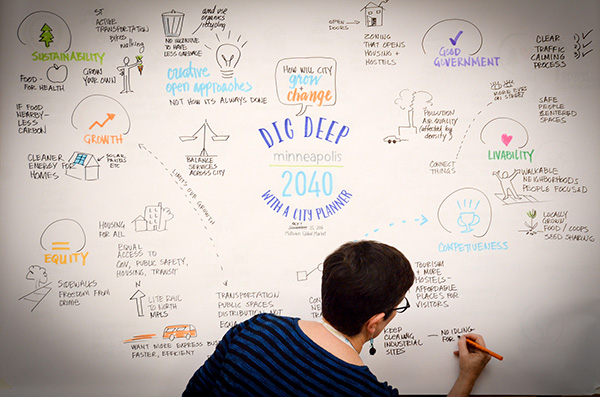 5T
ACTIVE
TRANSPORTATION
Bikes
walking
SUSTAINABILITY
FOOD -
FOR HEALTH
GROW
YOUR OWN
NO INCENTIVE
TO HAVE
LESS GARBAGE
and use
organics
recycling
creative
open approaches
NOT HOW ITS ALWAYS DONE
HOW WILL CITY
grow
+
CHANGE
OPEN
DOORS
ZONING
THAT OPENS
HOUSING +
HOSTELS
GOOD
GOVERNMENT
CLEAR
TRAFFIC
CALMING
PROCESS
1)
2)
3)
IF FOOD
NEARBY-
LESS
CARBON
GROWTH
CLEANER
ENERGY FOR
HOMES
SOLAR
PANELS
ETC
BALANCE
SERVICES
ACROSS CITY
DIG DEEP
minneapolis
2040
WITH A CITY PLANNER
Midtown Global Market
POLLUTION
AIR QUALITY
(affected by
density)
MORE EYES
ON STREET
SAFE
PEOPLE
CENTERED
SPACES
CONNECT
THINGS
LIVABILITY
WALKABLE
NEIGHBORHOODS
PEOPLE FOCUSED
LOCALLY
GROWN
FOOD / COOPS
SEED SHARING
COMPETIVENESS
EQUITY
HOUSING
FOR ALL
EQUAL
ACCESS TO
GOV, PUBLIC SAFETY,
HOUSING, TRANSIT
SIDEWALKS
FREEDOM FROM
LITE RAIL
TO NORTH
MPLS
TRANSPORTATION
PUBLIC SPACES
DISTRIBUTION NOT
WANT MORE EXPRESS
FASTER, EFFICIENT
TOURISM
+ MORE
HOSTELS-
AFFORDABLE
PLACES FOR
VISITORS
KEEP
CLEANING
INDUSTRIAL
SITES
- NO IDLING
FOR